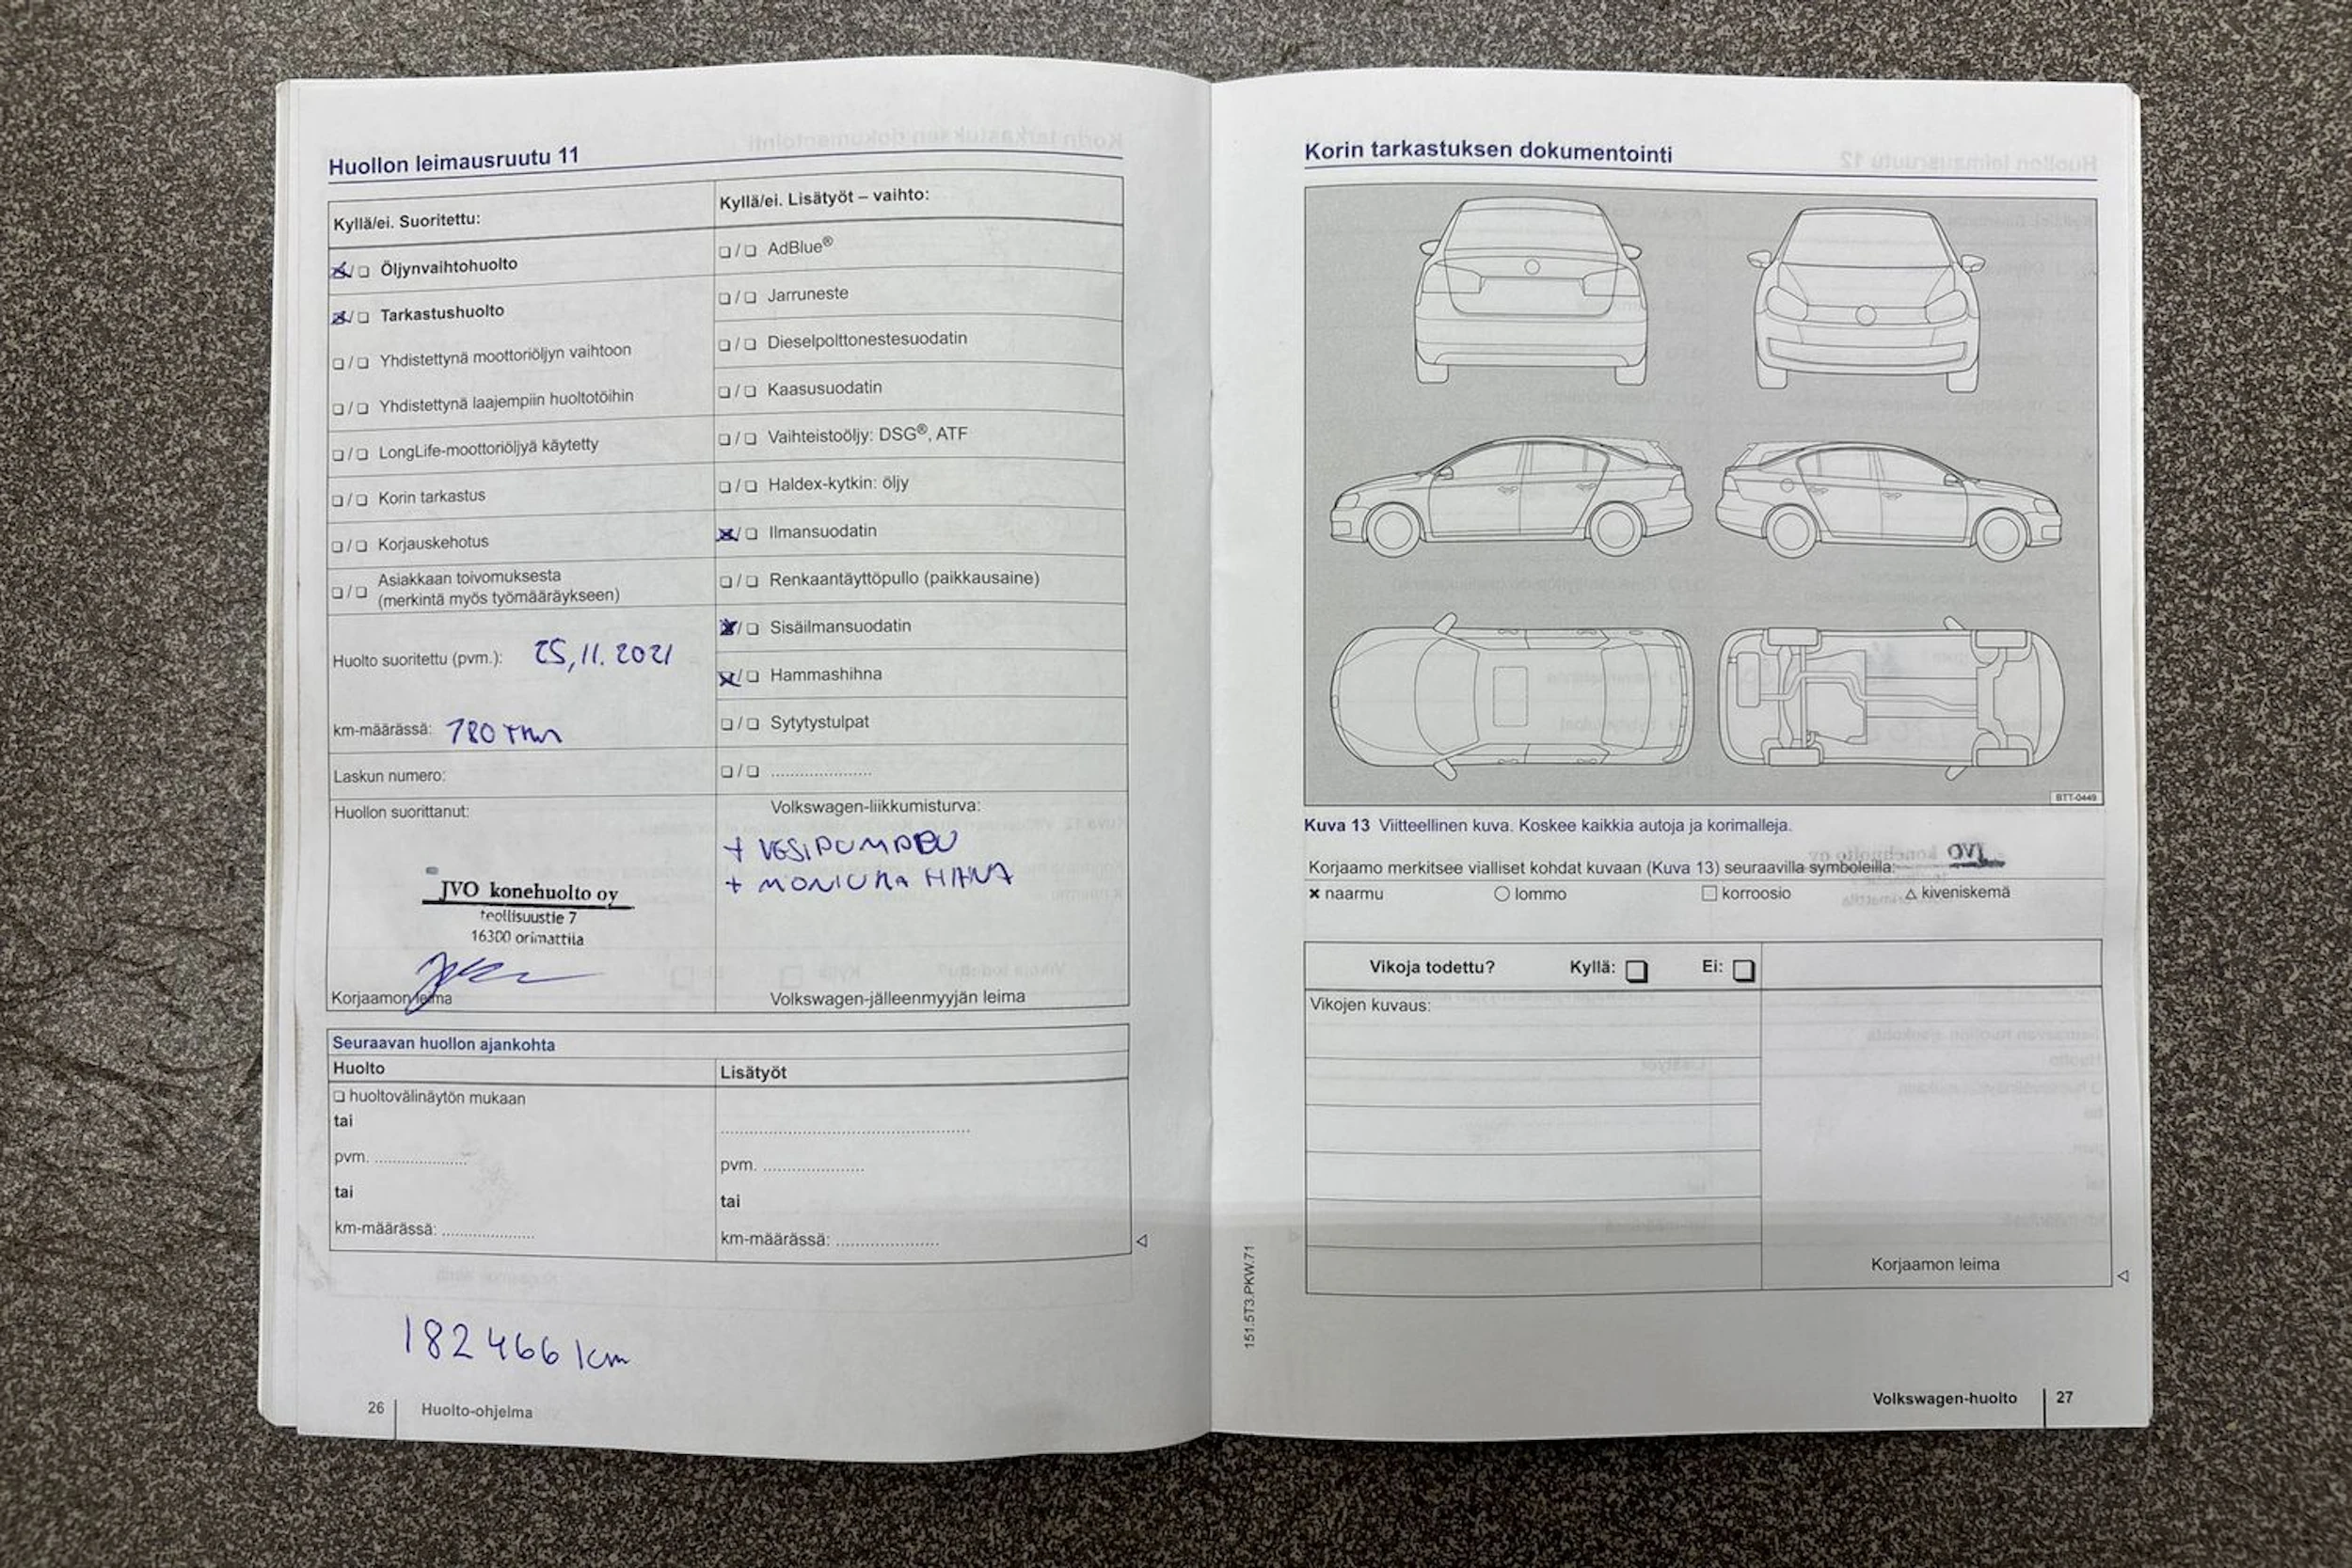 Huollon leimausruutu 11
Kyllä/ei. Suoritettu:
❏/❏ Öljynvaihtohuolto
❏/❏ Tarkastushuolto
❏/❏ Yhdistettynä moottoriöljyn vaihtoon
❏/❏ Yhdistettynä laajempiin huoltotöihin
❏/❏ LongLife-moottoriöljyä käytetty
❏/❏ Korin tarkastus
❏/❏ Korjauskehotus
❏/❏ Asiakkaan toivomuksesta
(merkintä myös työmääräykseen)
Huolto suoritettu (pvm.): 25,11.2021
km-määrässä: 180 tkm
Laskun numero:
Huollon suorittanut:
JVO konehuolto oy
teollisuustie 7
16300 orimattila
Korjaamon leima
Kyllä/ei. Lisätyöt – vaihto:
❏/❏ AdBlue®
❏/❏ Jarruneste
❏/❏ Dieselpolttonestesuodatin
❏/❏ Kaasusuodatin
❏/❏ Vaihteistoöljy: DSG®, ATF
❏/❏ Haldex-kytkin: öljy
❏/❏ Ilmansuodatin
❏/❏ Renkaantäyttöpullo (paikkausaine)
❏/❏ Sisäilmansuodatin
❏/❏ Hammashihna
❏/❏ Sytytystulpat
❏/❏ .....................
Volkswagen-liikkumisturva:
+ VESIPUMPPU
+ MONIURA HIHNA
Volkswagen-jälleenmyyjän leima
Seuraavan huollon ajankohta
Huolto
❏ huoltovälinäytön mukaan
tai
pvm. ...................
tai
km-määrässä: ...................
Lisätyöt
..................................................
pvm. .....................
tai
km-määrässä: .....................
182 466 km
26 Huolto-ohjelma
Korin tarkastuksen dokumentointi
BTT-0449
Kuva 13 Viitteellinen kuva. Koskee kaikkia autoja ja korimalleja.
Korjaamo merkitsee vialliset kohdat kuvaan (Kuva 13) seuraavilla symboleilla:
✖ naarmu ○ lommo □ korroosio △ kiveniskemä
Vikoja todettu? Kyllä: ❏ Ei: ❏
Vikojen kuvaus:
Korjaamon leima
151.5T3.PKW.71
Volkswagen-huolto 27